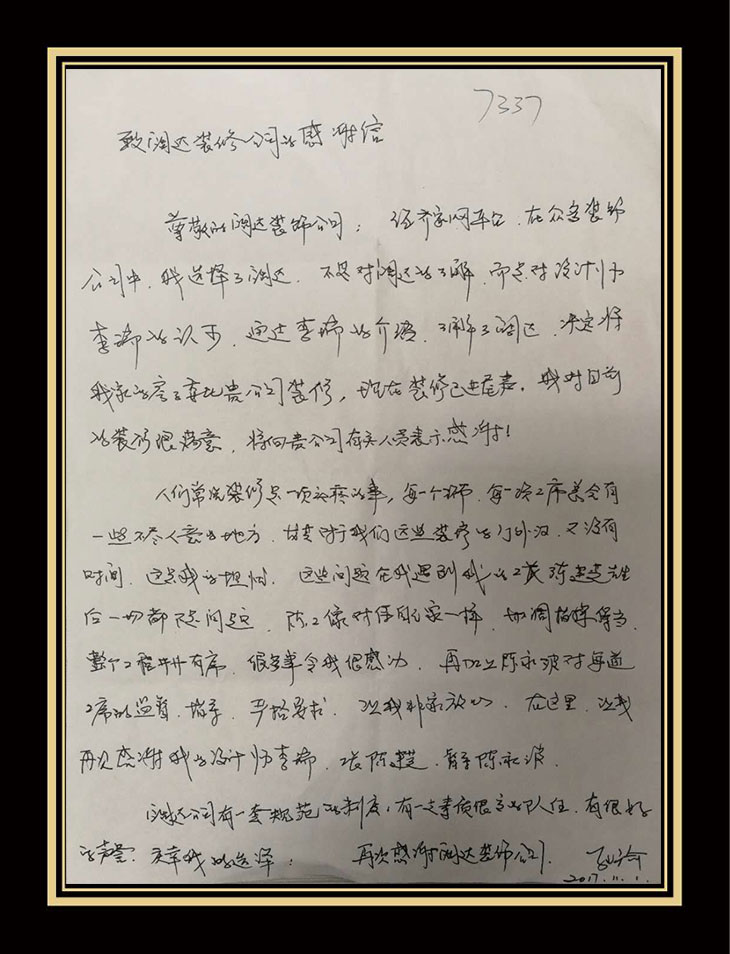 7337
致阔达装修公司的感谢信
尊敬的阔达装饰公司: 经齐家网平台,在众多装饰
公司中,我选择了阔达。不是对阔达的了解,而是对设计师
李瑞的认可,通过李瑞的介绍,了解了阔达,决定将
我家的房子委托贵公司装修,现在装修已进尾声,我对目前
的装修很满意,特向贵公司有关人员表示感谢!
人们常说装修是一项头疼的事,每一个环节,每一道工序总会有
一些不尽人意的地方,尤其对于我们这些装修的门外汉,又没有
时间,这是我的担忧。这些问题在我遇到我的工长陈 先生
后一切都不是问题,陈工像对待自己家一样,协调指挥得当,
整个工程井井有序,很多事令我很感动,再加上陈永波对每道
工序的监督,指导,严格要求,让我非常放心。在这里,让我
再次感谢我的设计师李瑞,工长陈 ,监理陈永波。
阔达公司有一套规范的制度,有一支素质很高的队伍,有很好
的声誉。庆幸我的选择! 再次感谢阔达装饰公司。
2017.11.1.